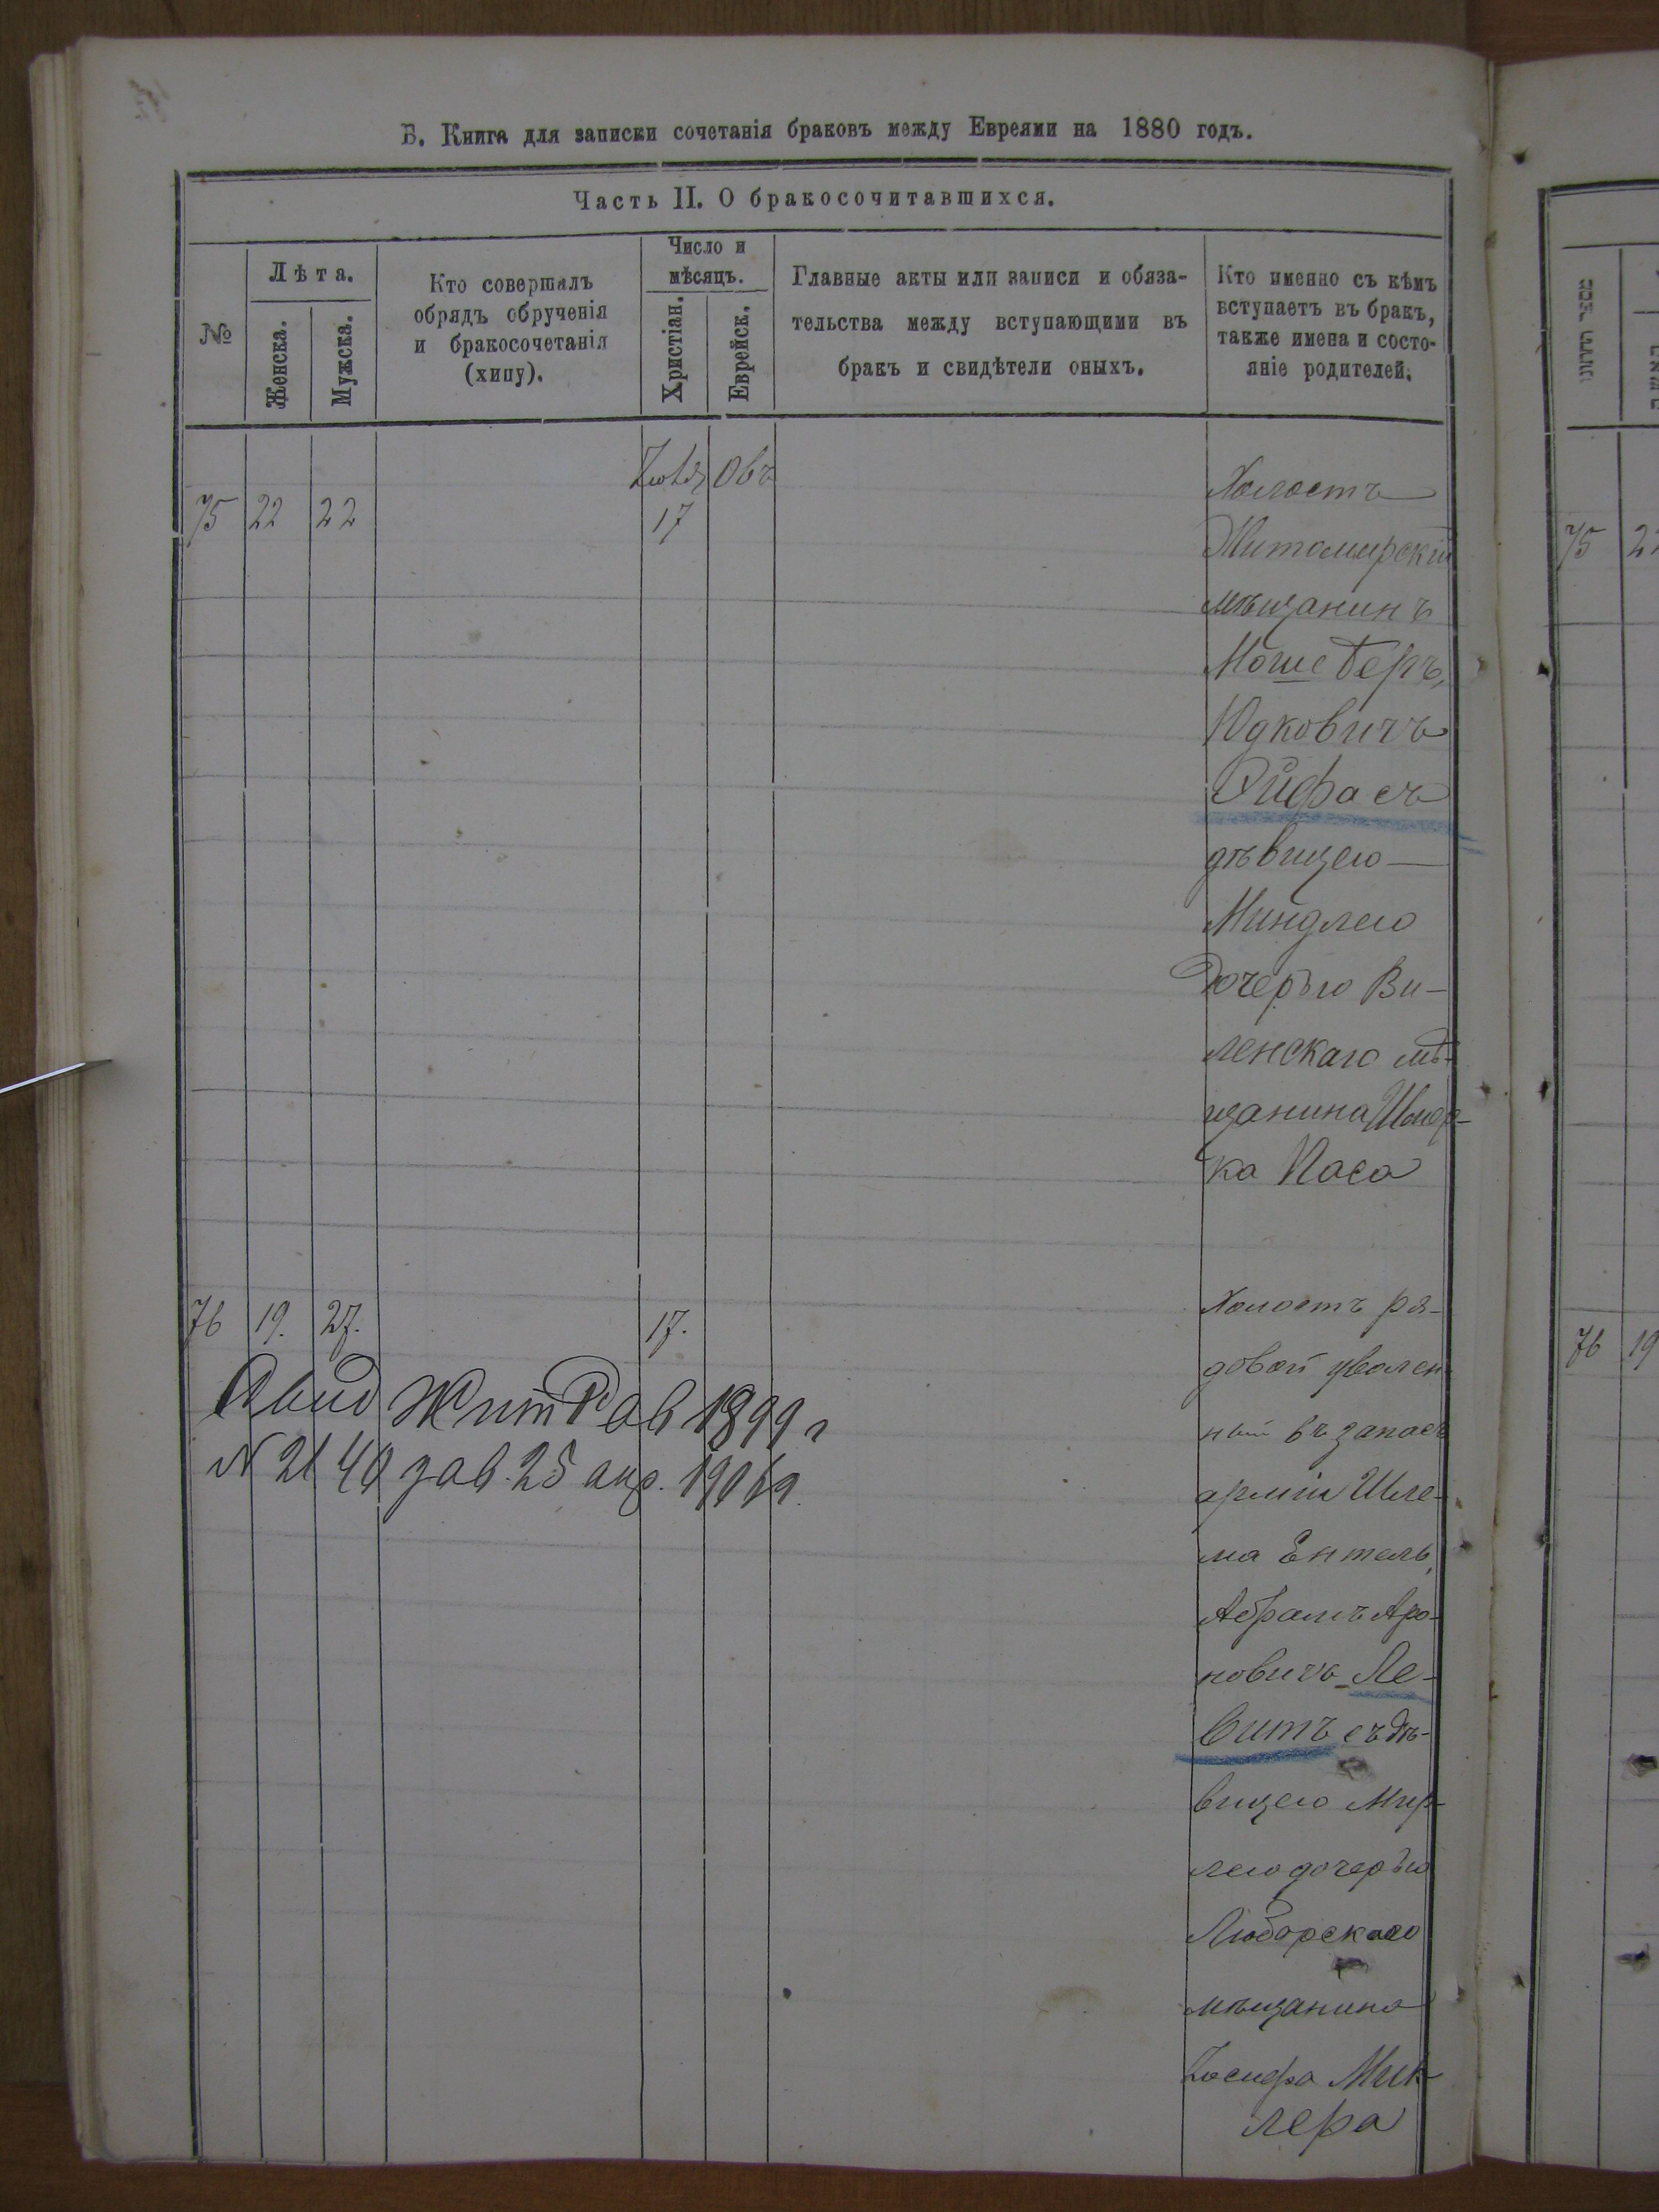 Б. Книга для записки сочетанія браковъ между Евреями на 1880 годъ.
Часть II. О бракосочитавшихся.
№
Лѣта.
Женска.
Мужска.
Кто совершалъ
обрядъ обрученія
и бракосочетанія
(хипу).
Число и
мѣсяцъ.
Христіан.
Еврейск.
Главные акты или записи и обяза-
тельства между вступающими въ
бракъ и свидѣтели оныхъ.
Кто именно съ кѣмъ
вступаетъ въ бракъ,
также имена и состо-
яніе родителей.
Іюля Овъ
75 22 22 17
Холостъ
Житомирскій
мѣщанинъ
Моше Беръ,
Юдковичъ
Ойфа съ
дѣвицею
Миндлею
дочерью Ви-
ленскаго мѣ-
щанина
ка Паса
76 19. 27. 17.
Холостъ ря-
довой уволен-
ный въ запасъ
арміи Шле-
ма Ентель,
Абрамъ Аро-
новичъ Ле-
витъ съ дѣ-
вицею Мир-
лею дочерью
Любарскаго
мѣщанина
Іосифа Мик-
лера
1899 г
N 2140 25 апр.
75 2
76 19